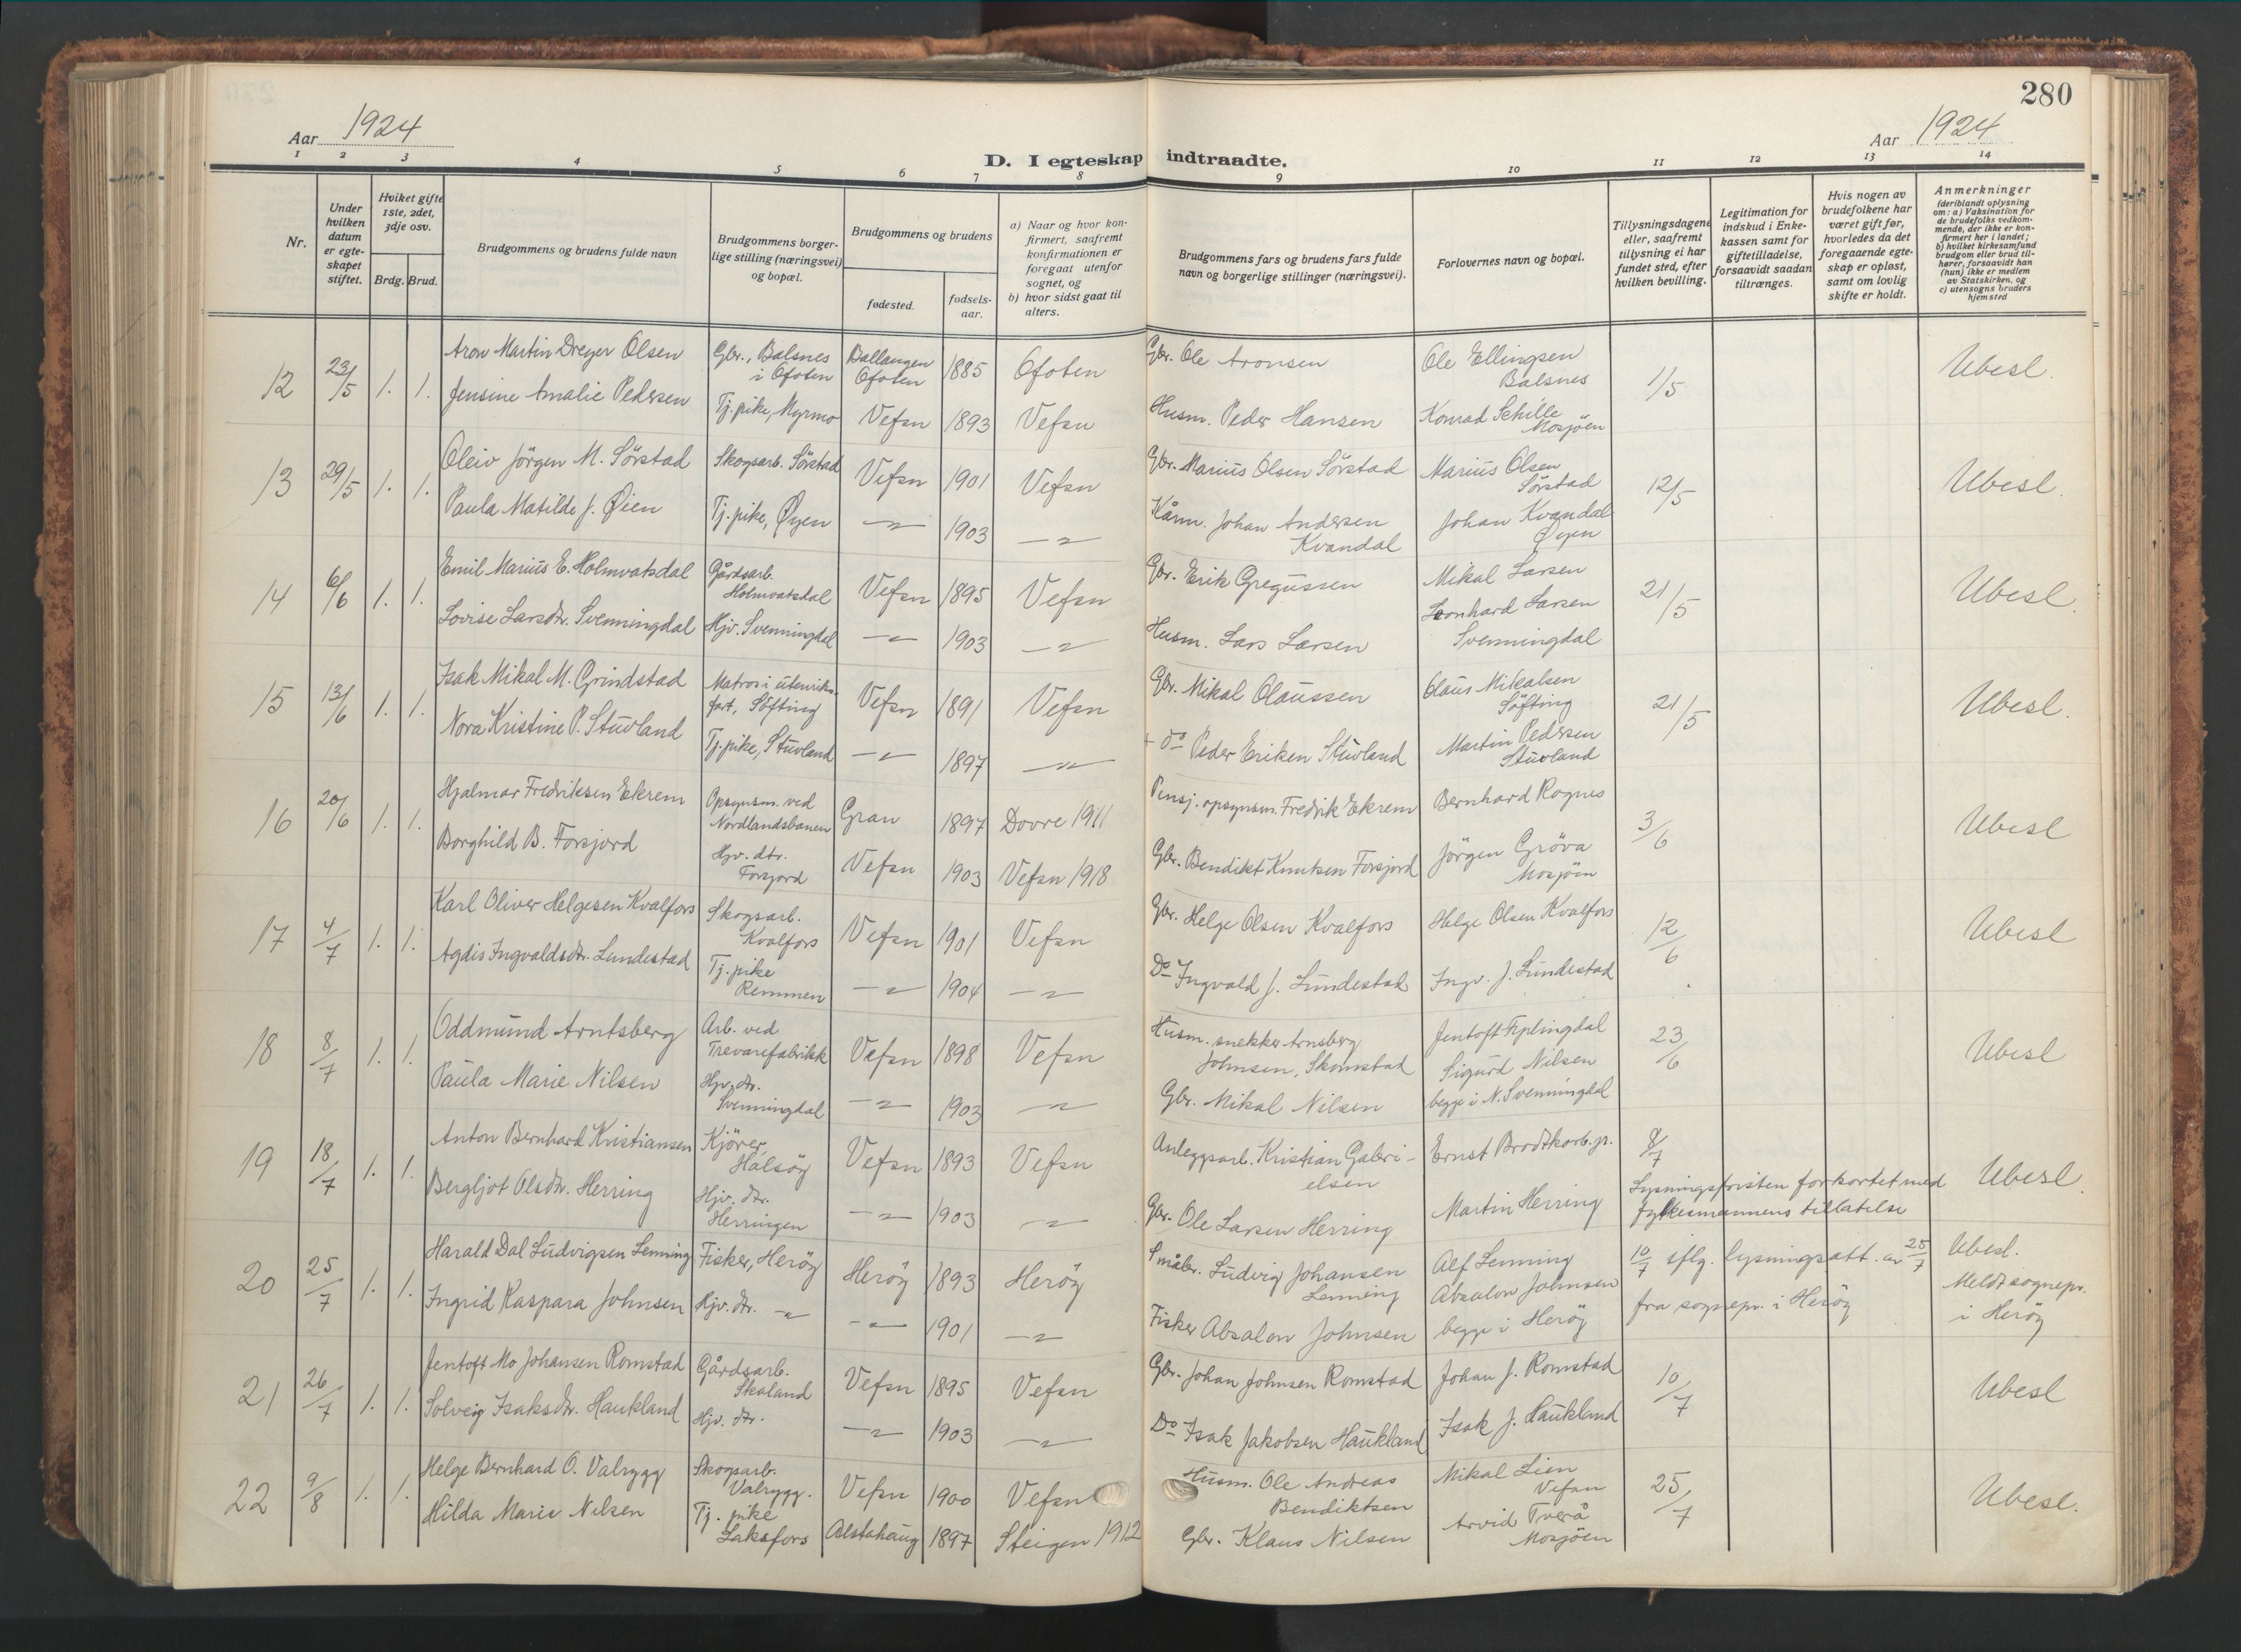 280
Aar 1924
Aar 1924
D. I egteskap indtraadte.
1 2 3 4 5 6 7 8 9 10 11 12 13 14
Nr.
Under hvilken datum er egte-skapet stiftet.
Hviket gifte 1ste, 2det, 3dje osv.
Brdg. Brud.
Brudgommens og brudens fulde navn
Brudgommens borger-lige stilling (næringsvei) og bopæl.
Brudgommens og brudens
fødested.
fødsels-aar.
a) Naar og hvor kon-firmert, saafremt konfirmationen er foregaat utenfor sognet, og
b) hvor sidst gaat til alters.
Brudgommens fars og brudens fars fulde navn og borgerlige stillinger (næringsvei).
Forlovernes navn og bopæl.
Tillysningsdagene eller, saafremt tillysning ei har fundet sted, efter hvilken bevilling.
Legitimation for indskud i Enke-kassen samt for giftetilladelse, forsaavidt saadan tiltrænges.
Hvis nogen av brudefolkene har været gift før, hvorledes da det foregaaende egte-skap er opløst, samt om lovlig skifte er holdt.
Anmerkninger (deriblandt oplysning om: a) Vaksination for de brudefolks vedkom-mende, der ikke er kon-firmert her i landet; b) hvilket kirkesamfund brudgom eller brud til-hører, forsaavidt han (hun) ikke er medlem av Statskirken, og c) utensogns bruders hjemsted
12 23/5 1. 1. Aron Martin Dreyer Olsen Gbr., Balsnes i Ofoten Ballangen Ofoten 1885 Ofoten Gbr. Ole Aronsen Ole Ellingsen Balsnes 1/5 Ubesl.
Jensine Amalie Pedersen Tj. pike, Myrmo Vefsn 1893 Vefsn Husm. Peder Hansen Konrad Schille Mosjøen
13 29/5 1. 1. Oleiv Jörgen M. Sörstad Skogsarb. Sörstad Vefsn 1901 Vefsn Gbr. Marius Olsen Sörstad Marius Olsen Sörstad 12/5 Ubesl.
Paula Matilde J. Øien Tj. pike, Øyen -"- 1903 -"- Kårm. Johan Andersen Kvandal Johan Kvandal Øyen
14 6/6 1. 1. Emil Marius E. Holmvatsdal Gårdsarb. Holmvatsdal Vefsn 1895 Vefsn Gbr. Erik Gregussen Mikal Larsen 21/5 Ubesl.
Lovise Larsdtr. Svenningdal Hjv. Svenningdal -"- 1903 -"- Husm. Lars Larsen Leonhard Larsen Svenningdal
15 13/6 1. 1. Isak Mikal M. Grindstad Matros i utenriks-fart, Söfting Vefsn 1891 Vefsn Gbr. Mikal Olaussen Olaus Mikalsen Söfting 21/5 Ubesl.
Nora Kristine P. Stuvland Tj. pike, Stuvland -"- 1897 -"- + do Peder Eriken Stuvland Martin Pedersen Stuvland
16 20/6 1. 1. Hjalmar Fredriksen Ekrem Opsynsm. ved Nordlandsbanen Gran 1897 Dovre 1911 Pensj. opsynsm. Fredrik Ekrem Bernhard Rognes 3/6 Ubesl
Borghild B. Forsjord Hjv. dtr. Forsjord Vefsn 1903 Vefsn 1918 Gbr. Bendikt Knutsen Forsjord Jörgen Gröva Mosjöen
17 4/7 1. 1. Karl Oliver Helgesen Kvalfors Skogsarb. Kvalfors Vefsn 1901 Vefsn Gbr. Helge Olsen Kvalfors Helge Olsen Kvalfors 12/6 Ubesl
Agdis Ingvaldsdtr. Lundestad Tj. pike Remmen -"- 1904 -"- Do Ingvald J. Lundestad Ingv. J. Lundestad
18 8/7 1. 1. Oddmund Arntsberg Arb. ved Trevarefabrikk Vefsn 1898 Vefsn Husm. snekker Arnsberg Johnsen, Skomstad Jentoft Fiplingdal 23/6 Ubesl
Paula Marie Nilsen Hjv. dtr. Svenningdal -"- 1903 -"- Gbr. Mikal Nilsen Sigurd Nilsen begge i N. Svenningdal
19 18/7 1. 1. Anton Bernhard Kristiansen Kjörer, Halsöy Vefsn 1893 Vefsn Anleggsarb. Kristian Gabri-elsen Ernst Brodtkorb. jr. 8/7 Lysningsfristen forkortet med fylkesmannens tillatelse Ubesl.
Bergljot Olsdtr. Herring Hjv. dtr. Herringen -"- 1903 -"- Gbr. Ole Larsen Herring Martin Herring
20 25/7 1. 1. Harald Dal Ludvigsen Lenning Fisker, Heröy Heröy 1893 Heröy Småbr. Ludvig Johansen Lenning Alf Lenning 10/7 iflg. lysningsatt. av 25/7 fra sognepr. i Heröy Ubesl. Meldt sognepr. i Heröy
Ingrid Kaspara Johnsen Hjv. dtr. -"- -"- 1901 -"- Fisker Absalon Johnsen Absalon Johnsen begge i Heröy
21 26/7 1. 1. Jentoft Mo Johansen Romstad Gårdsarb. Skaland Vefsn 1895 Vefsn Gbr. Johan Johnsen Romstad Johan J. Romstad 10/7 Ubesl
Solveig Isaksdtr. Haukland Hjv. dtr. -"- 1903 -"- Do Isak Jakobsen Haukland Isak J. Haukland
22 9/8 1. 1. Helge Bernhard O. Valrygg Skogsarb. Valrygg. Vefsn 1900 Vefsn Husm. Ole Andreas Bendiktsen Mikal Lien Vefsn 25/7 Ubesl.
Hilda Marie Nilsen Tj. pike Laksfors Alstahaug 1897 Steigen 1912 Gbr. Klaus Nilsen Arvid Tverå Mosjöen